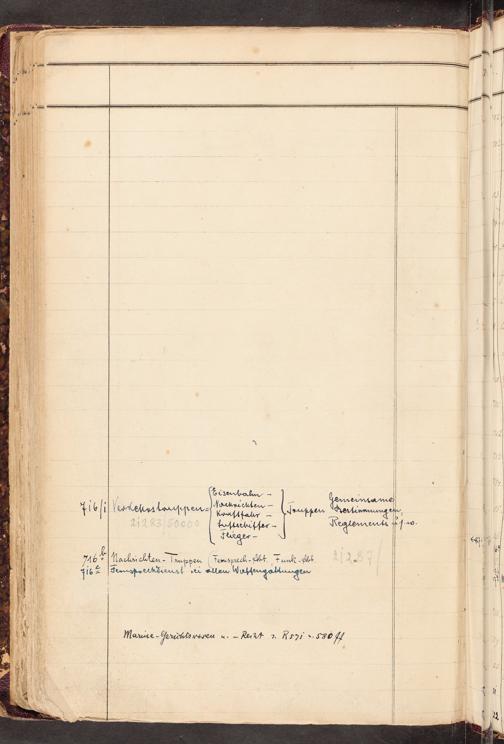 Eisenbahn-
Nachrichten-
716/i Verkehrstruppen = Kraftfahr- Truppen Gemeinsame
Luftschiffer- Bestimmungen,
Flieger- Reglements u.s.w.
2i283/50000
716 b Nachrichten-Truppen (Fernsprech-Abt. Funk-Abt. 2i287/
716 a Fernsprechdienst bei allen Waffengattungen
Marine-Gerichtswesen u. - Recht s. R 571 - 580 ff